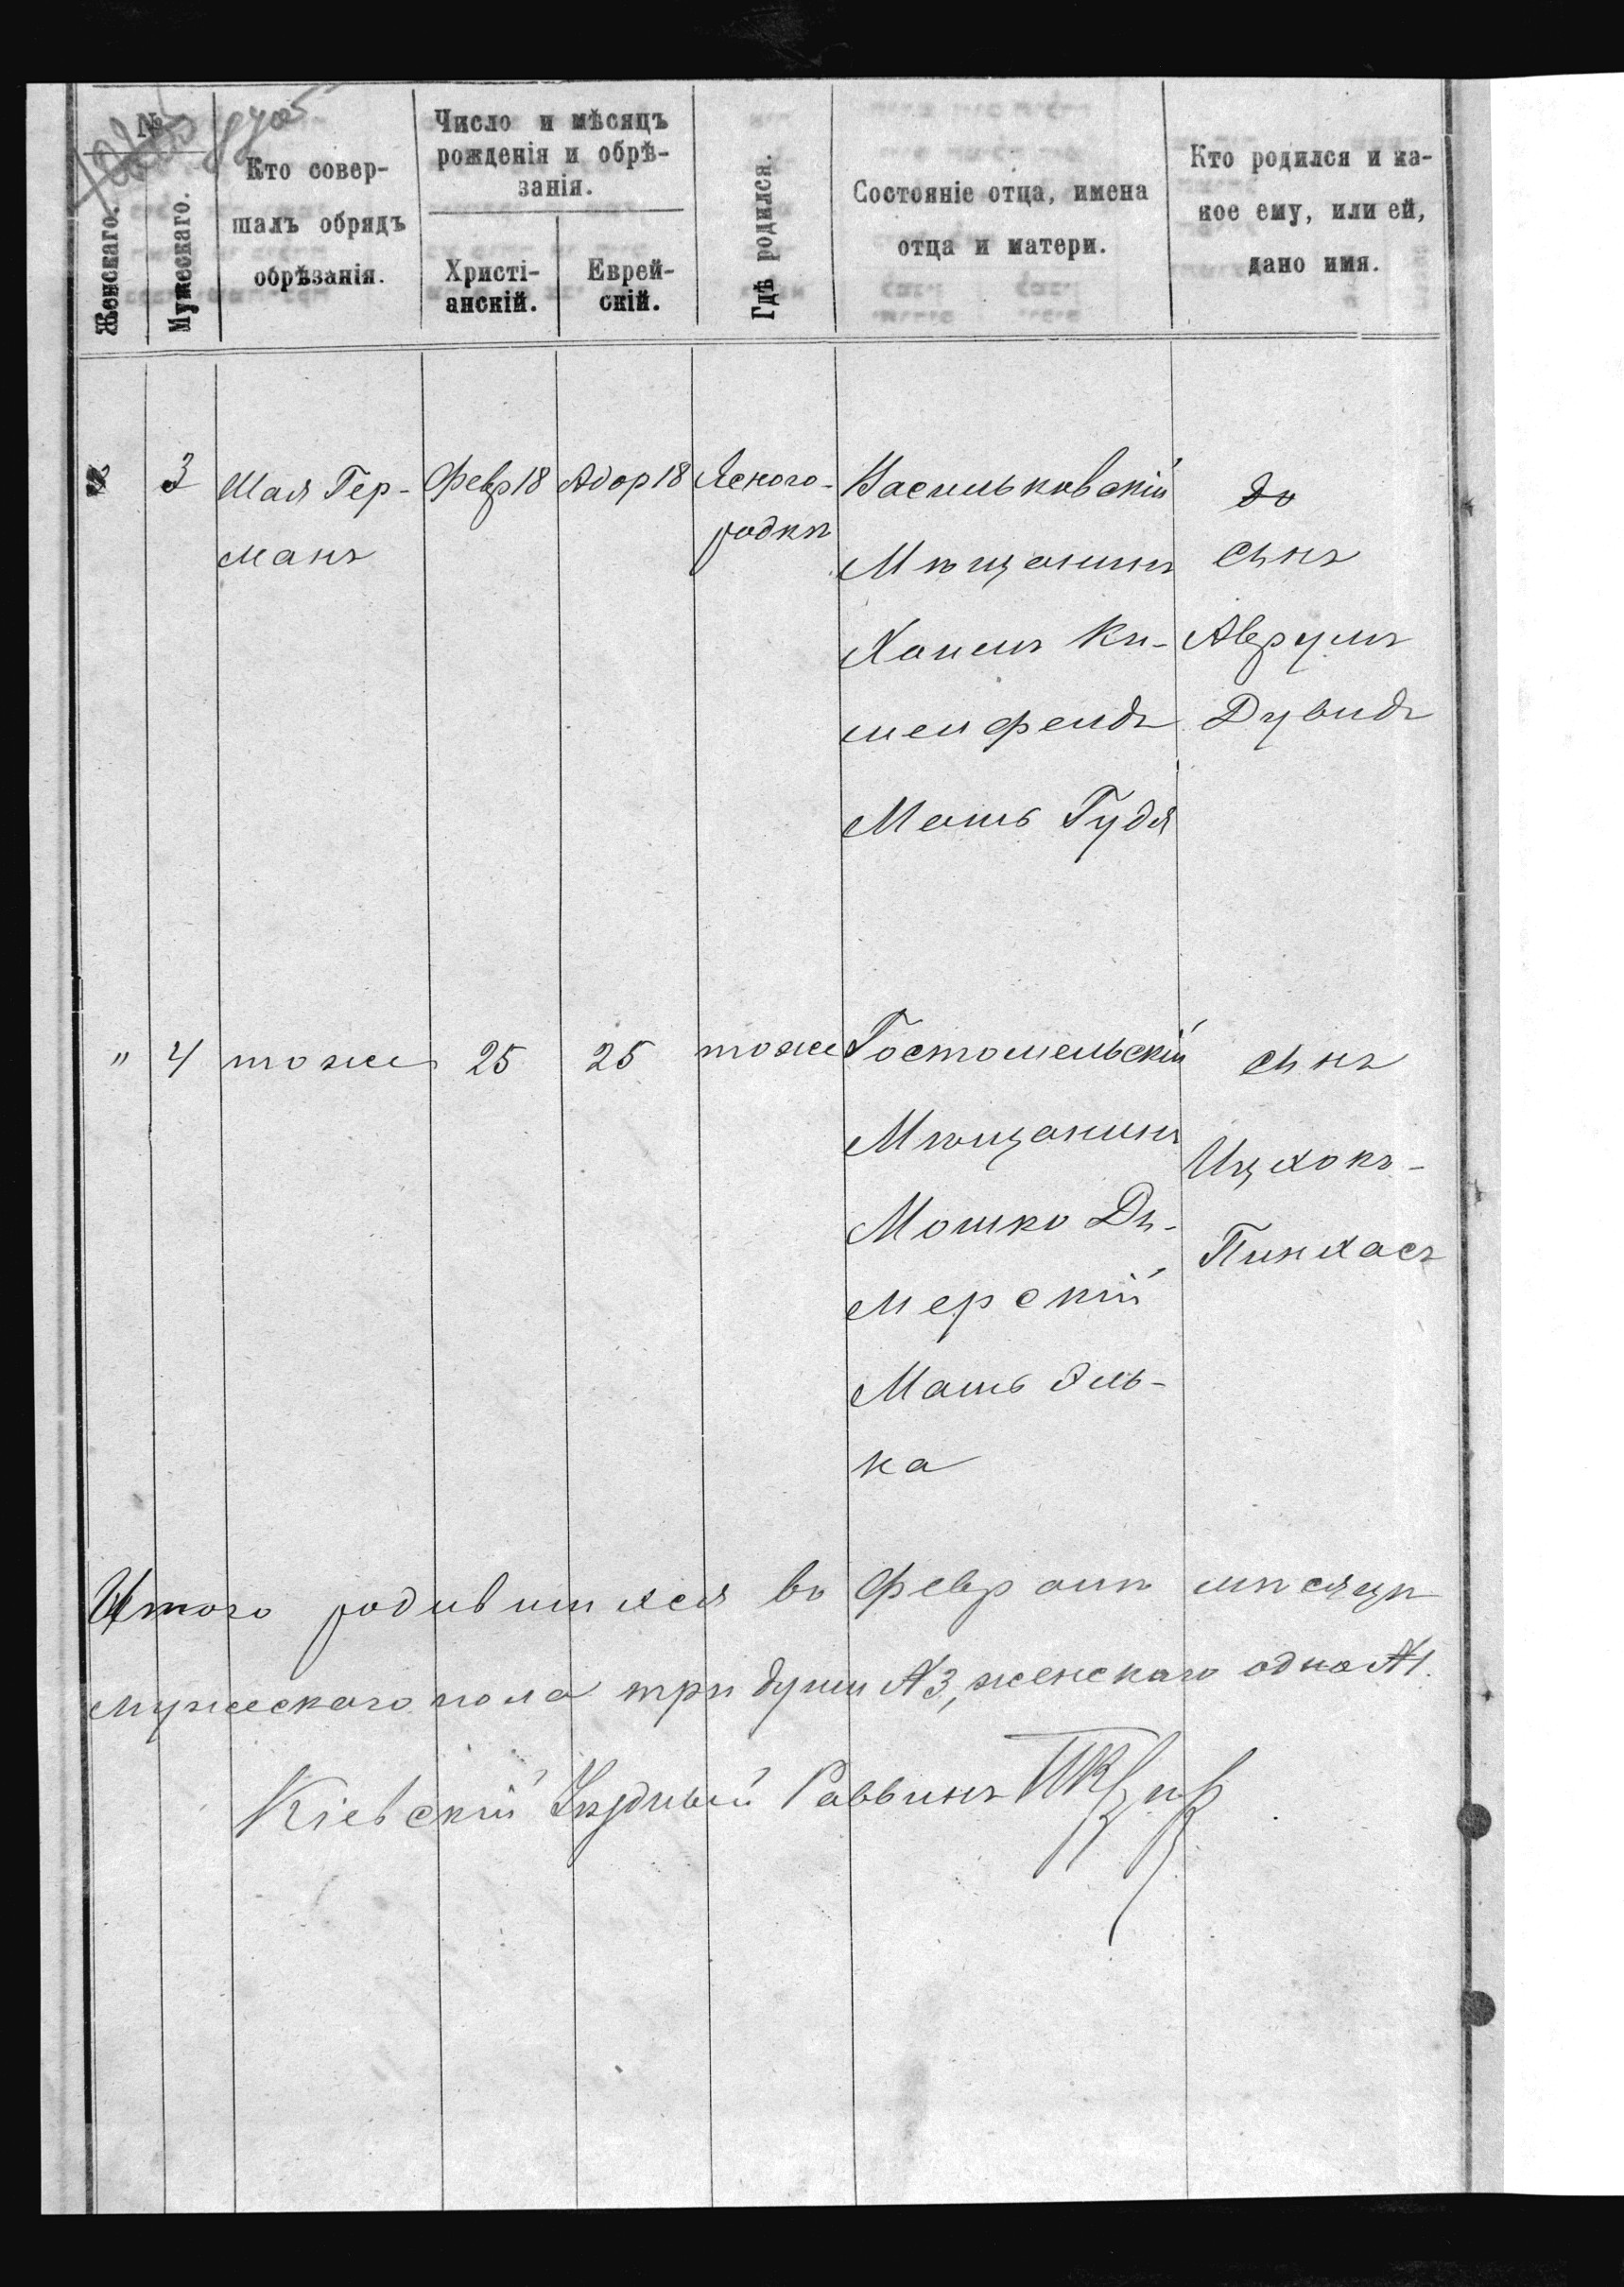 №
Женскаго.
Мужескаго.
Кто совер-
шалъ обрядъ
обрѣзанія.
Число и мѣсяцъ
рожденія и обрѣ-
занія.
Христі-
анскій.
Еврей-
скій.
Гдѣ родился.
Состояніе отца, имена
отца и матери.
Кто родился и ка-
кое ему, или ей,
дано имя.
3 Шая Гер-
манъ
Февр 18
Адор 18
Ясного-
родкѣ
Васильковскій
Мѣщанинъ
Хаимъ Ки-
мельфельдъ
Мать Гудя
сынъ
Аврумъ
Дувидъ
" 4 тоже 25 25 тоже
Гостомельскій
Мѣщанинъ
Мошко Ды-
мерскій
Мать Эль-
ка
сынъ
Ицхокъ-
Пинхасъ
Итого родившихся въ Февралѣ мѣсяцѣ
мужескаго пола три души №3, женскаго одна №1.
Кіевскій Уѣздный Раввинъ